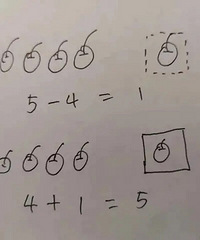 5 - 4 = 1
4 + 1 = 5